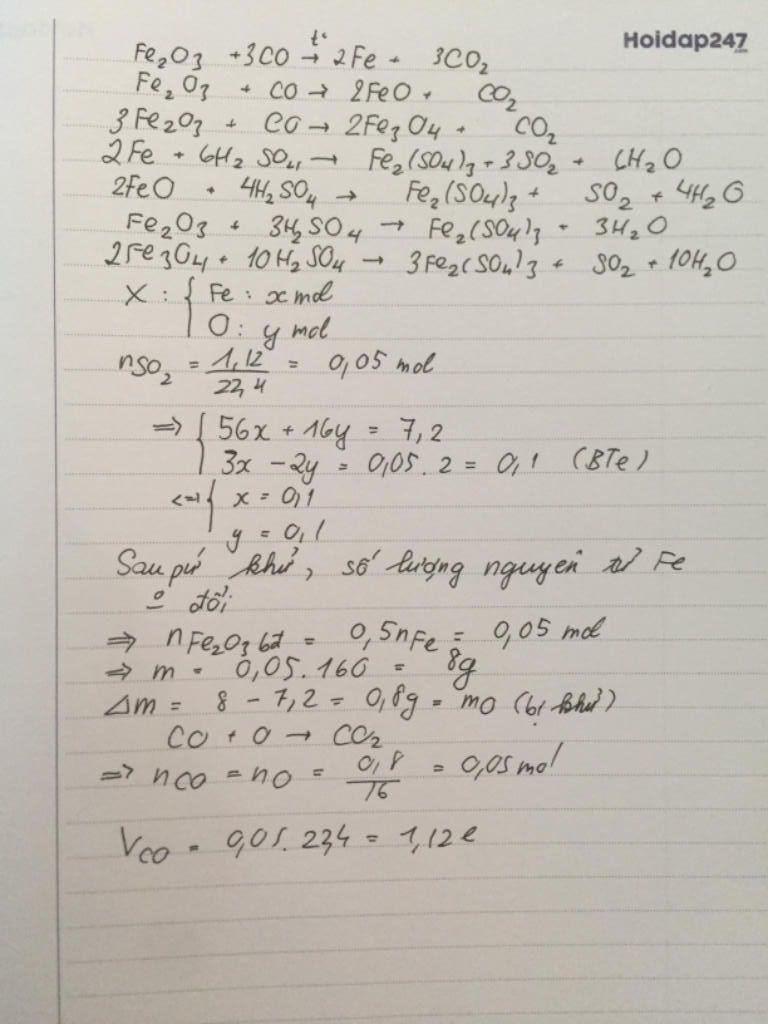 Hoidap247
Fe₂O₃ +3CO t° → 2Fe + 3CO₂
Fe₂O₃ + CO → 2FeO + CO₂
3Fe₂O₃ + CO → 2Fe₃O₄ + CO₂
2Fe + 6H₂SO₄ → Fe₂(SO₄)₃ + 3SO₂ + 6H₂O
2FeO + 4H₂SO₄ → Fe₂(SO₄)₃ + SO₂ + 4H₂O
Fe₂O₃ + 3H₂SO₄ → Fe₂(SO₄)₃ + 3H₂O
2Fe₃O₄ + 10H₂SO₄ → 3Fe₂(SO₄)₃ + SO₂ + 10H₂O
X : { Fe : x mol
O : y mol
nSO₂ = 1,12/22,4 = 0,05 mol
⇒ { 56x + 16y = 7,2
3x - 2y = 0,05. 2 = 0,1 (BTe)
<=> { x = 0,1
y = 0,1
Sau pứ khử, số lượng nguyên tử Fe
o đổi
⇒ nFe₂O₃ bđ = 0,5nFe = 0,05 mol
⇒ m = 0,05.160 = 8g
Δm = 8 - 7,2 = 0,8g = mO (bị khử)
CO + O → CO₂
⇒ nCO = nO = 0,8/16 = 0,05 mol
VCO = 0,05. 22,4 = 1,12 l